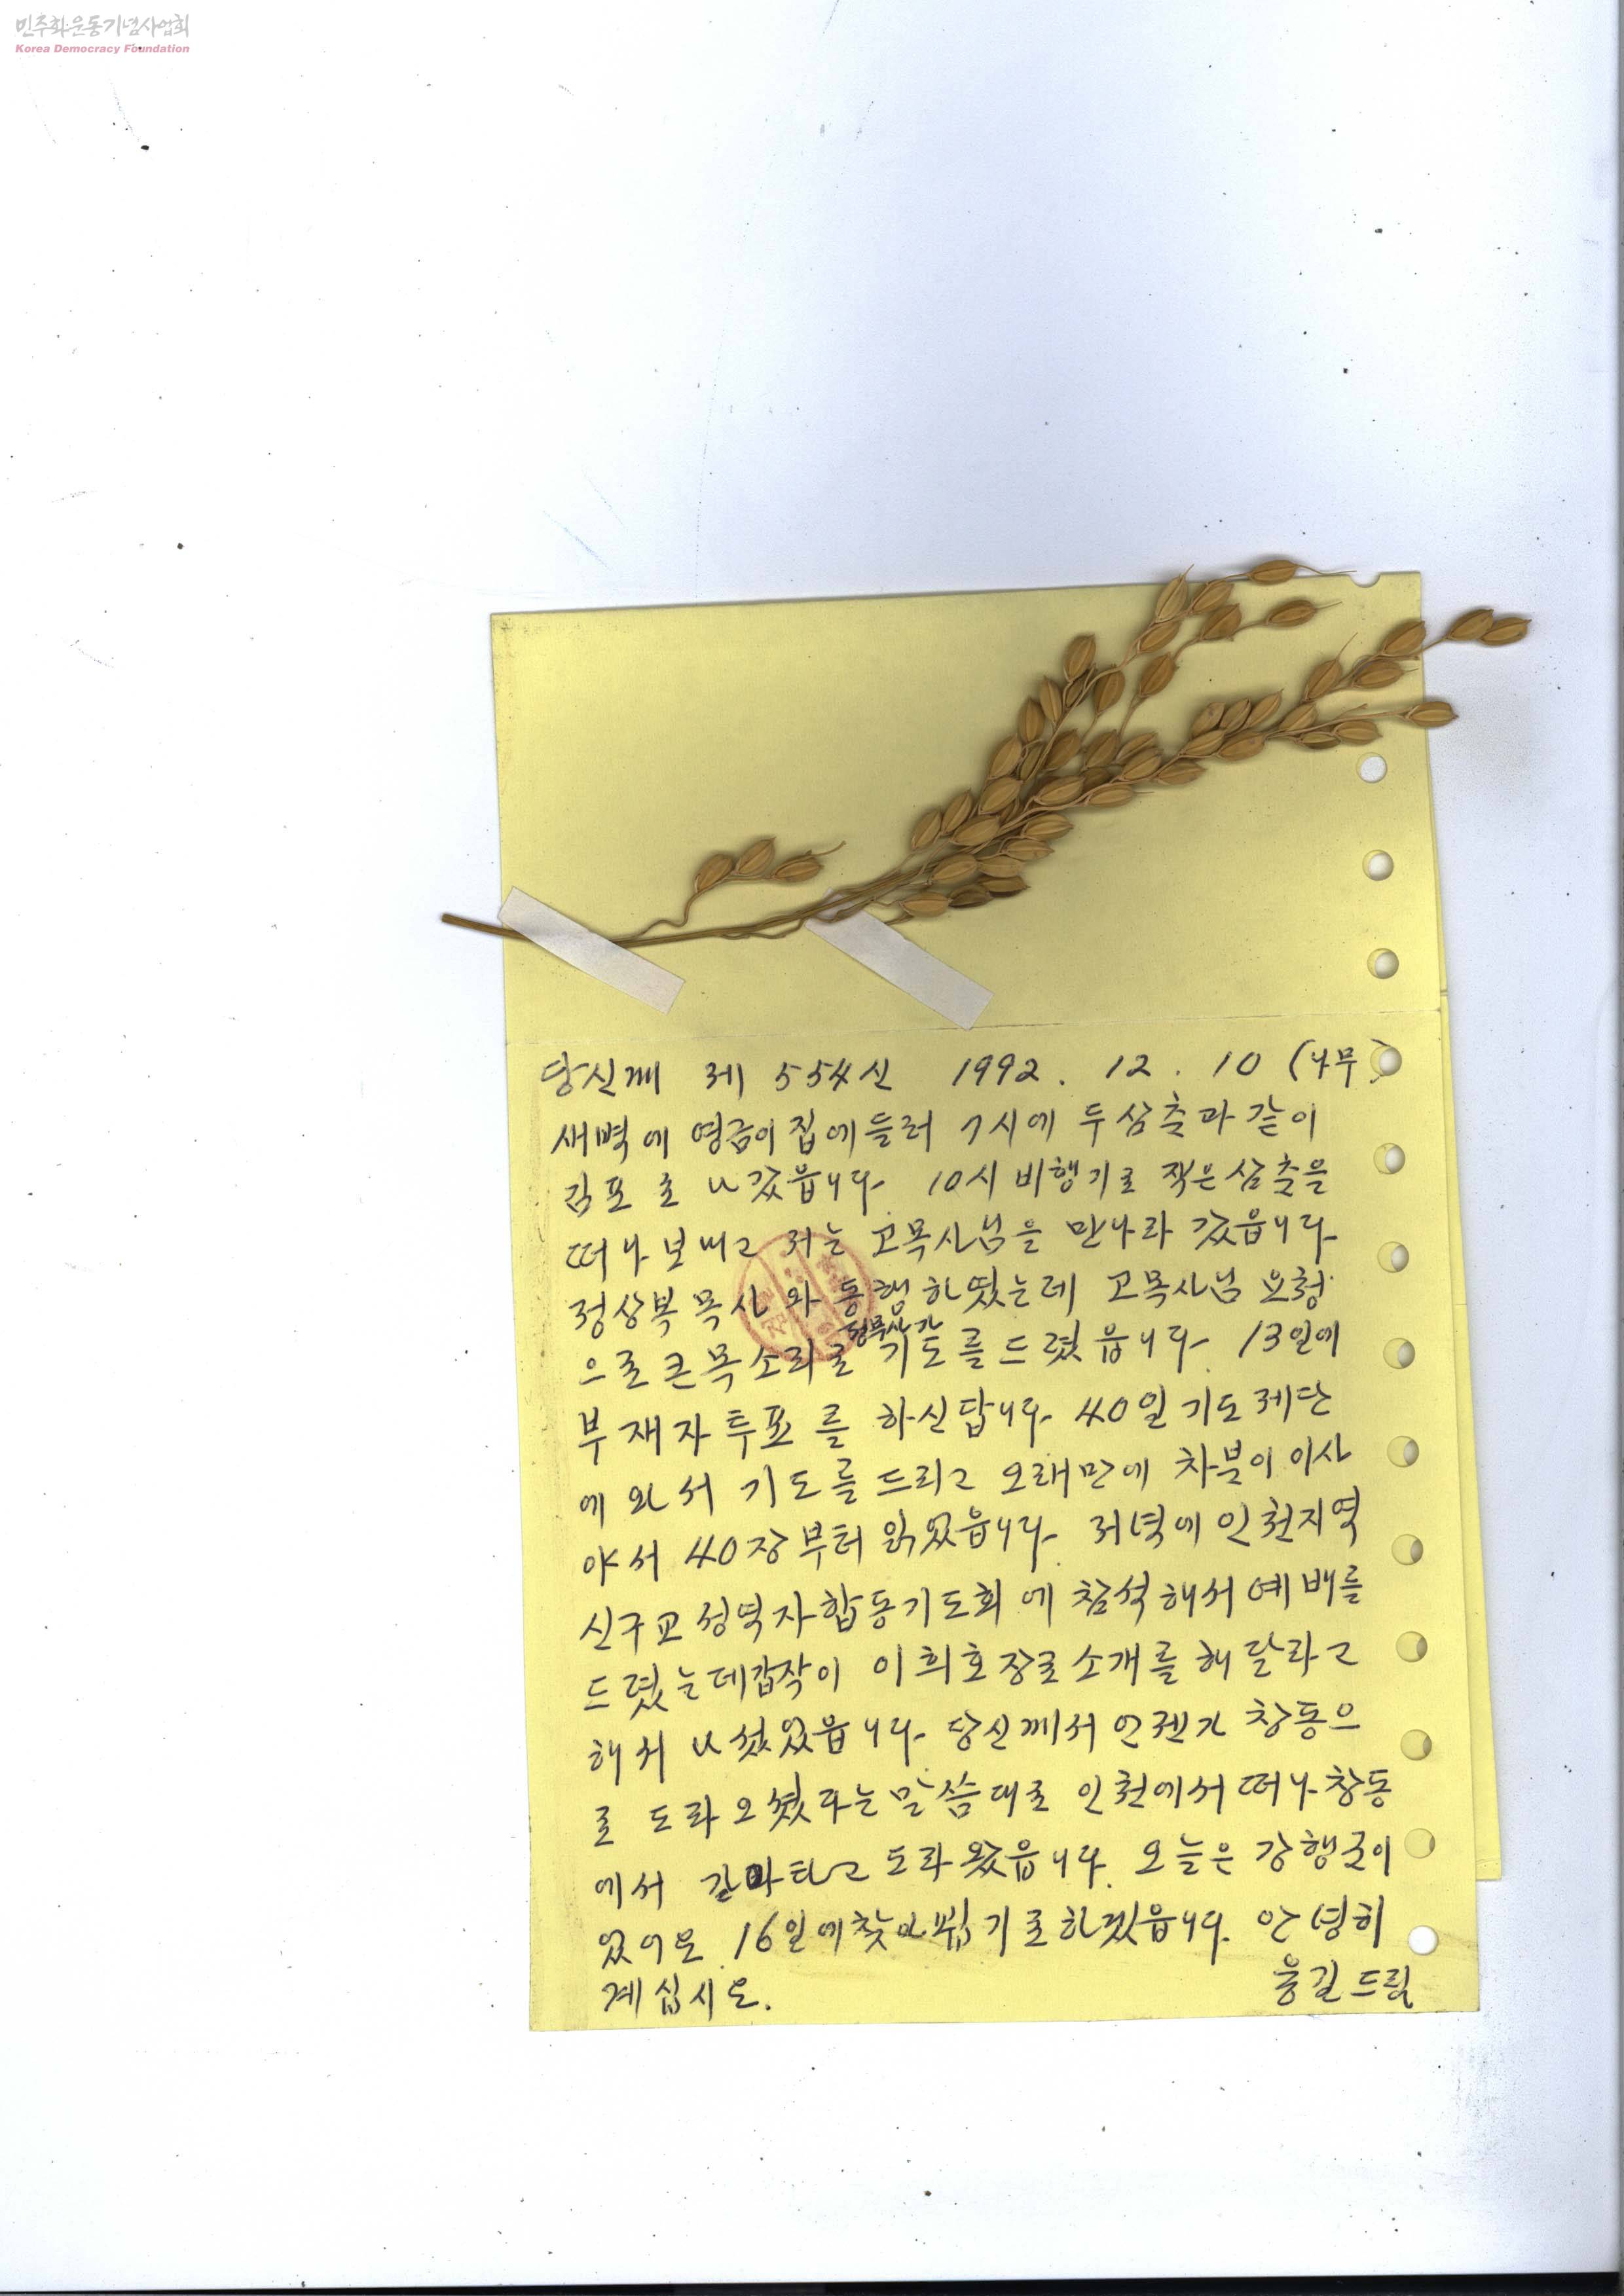 민주화운동기념사업회
Korea Democracy Foundation
당신께 제 554신 1992. 12. 10 (나무)
새벽에 영금이 집에 들러 7시에 두 삼춘과 같이
김포로 나갔읍니다. 10시 비행기로 작은 삼춘을
떠나 보내고 저는 고목사님을 만나라 갔읍니다.
정상복 목사와 동행하였는데 고목사님 요청
으로 큰 목소리로 정목사가 기도를 드렸읍니다. 13일에
부재자 투표를 하신답니다. 40일 기도 제단
에 와서 기도를 드리고 오래만에 차분이 이사
야서 40장부터 읽었읍니다. 저녁에 인천지역
신구교 성역자합동기도회에 참석해서 예배를
드렸는데 갑작이 이희호 장로 소개를 해 달라고
해서 나섰었읍니다. 당신께서 언젠가 창동으
로 도라오셨다는 말씀대로 인천에서 떠나 창동
에서 갈아타고 도라왔읍니다. 오늘은 강행군이
었어요. 16일에 찾아뵙기로 하겠읍니다. 안녕히
계십시오. 용길 드림